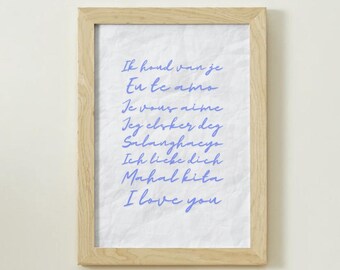 Ik houd van je
Eu te amo
Je vous aime
Jeg elsker deg
Salanghaeyo
Ich liebe dich
Mahal kita
I love you